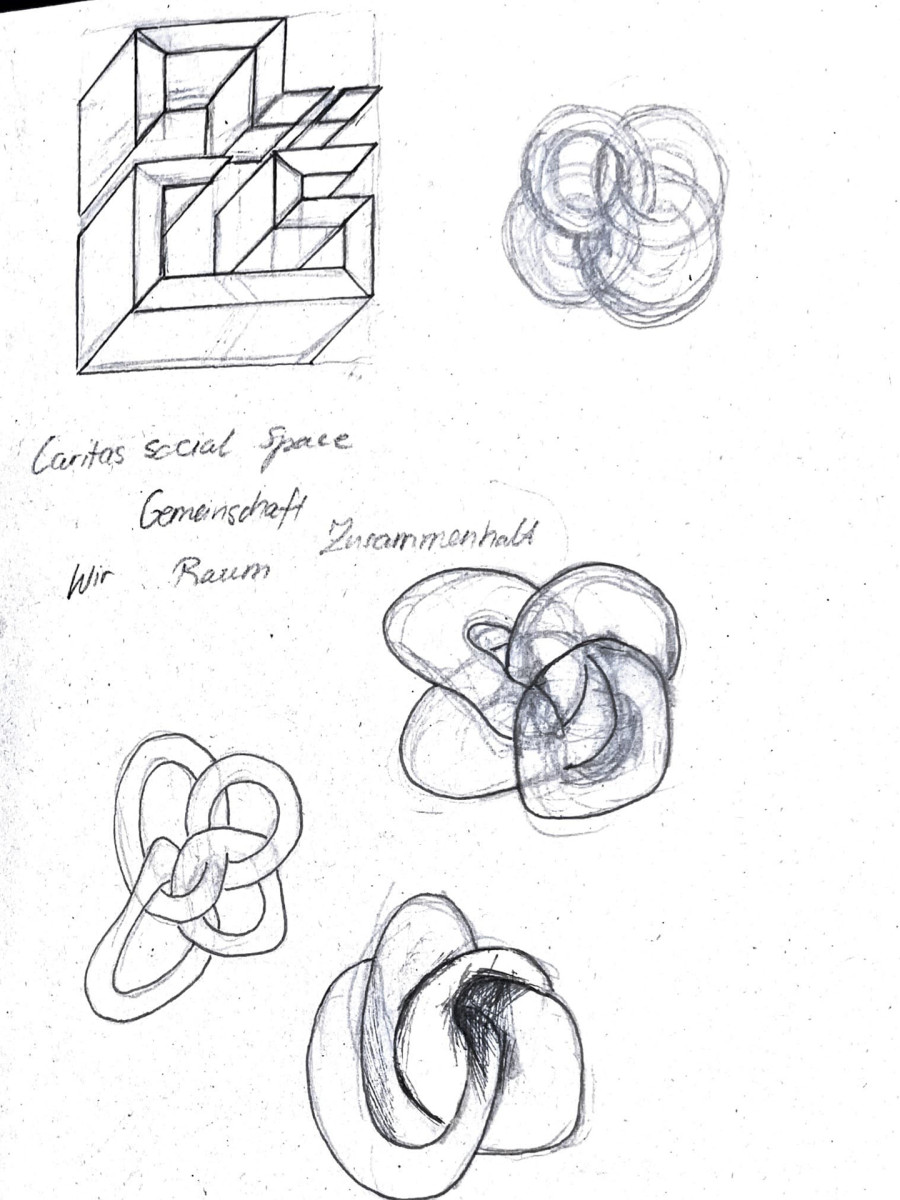 Caritas social Space
Gemeinschaft
Zusammenhalt
Wir Raum